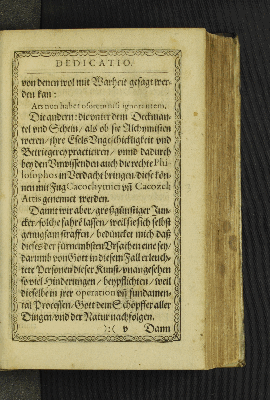 DEDICATIO.
von denen wol mit Warheit gesagt wer-
den kan:
Ars non habet osorem nisi ignorantem.
Die andern: die vnter dem Deckman-
tel vnd Schein / als ob sie Alchymisten
weren / jhre Esels Vngeschicklichkeit vnd
Betriegerey practicieren / vnnd dadurch
bey den Vnwissenden auch die rechte Phi-
losophos in Verdacht bringen / diese kön-
nen mit Fug Cacochymici vñ Cacozelí
Artis genennet werden.
Damit wir aber / großgünstiger Jun-
cker / solche fahrē lassen / weil sie sich selbst
gnugsam straffen / bedüncket mich daß
dieses der fürnembsten Vrsachen eine sey /
darumb von Gott in diesem Fall erleuch-
tete Personen dieser Kunst / vnangesehen
so viel Hinderungen / beypflichten / weil
dieselbe in jrer operation vñ fundamen-
tal Processen / Gott dem Schöpffer aller
Dingen / vnd der Natur nachfolgen.
):( v Dann